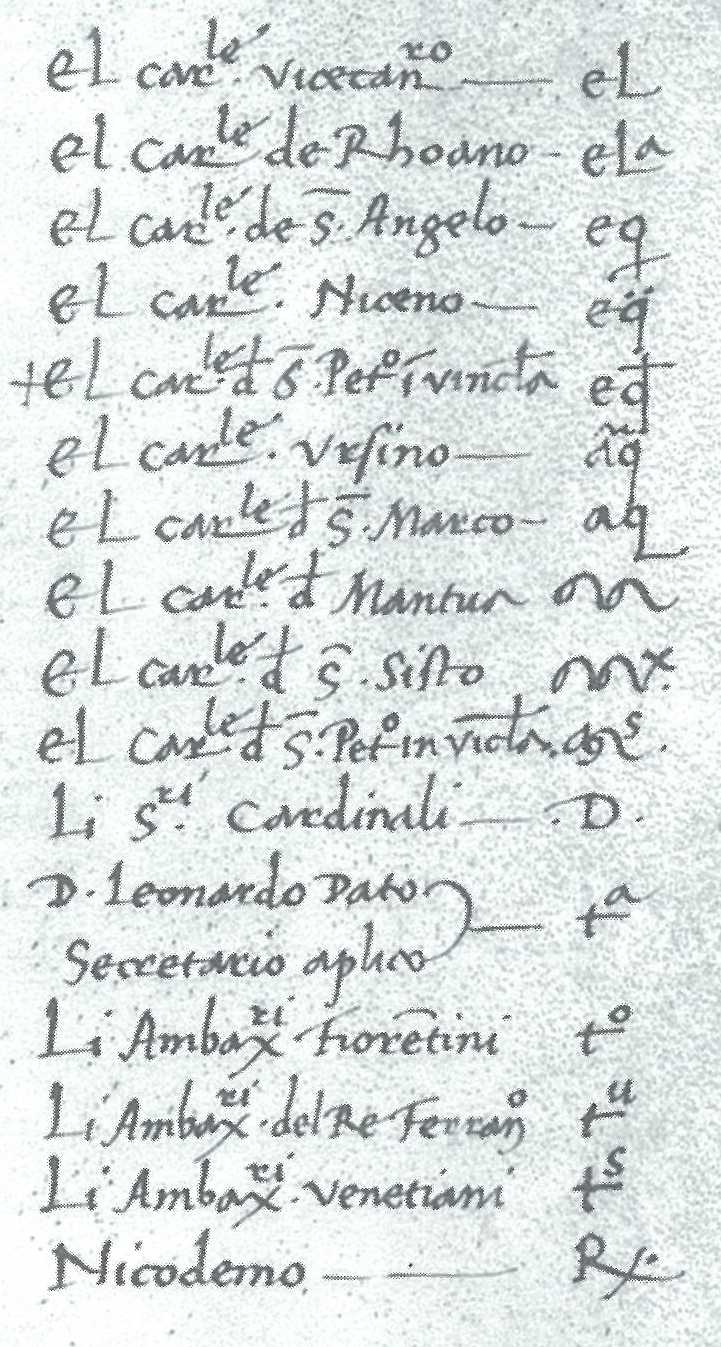 el car.le vicecan.ro — eL
el car.le de Rhoano - ela
el car.le de S. Angelo - eq
el car.le Niceno — eq̈
+ el car.le d S. Pet.o ī vincla
el car.le. Vrsino — 
el car.le d S. Marco - aq
el car.le d Mantua
el car.le d S. Sisto
el car.le d S. Pet.o in vīcla
Li S.ri Cardinali — .D.
D. Leonardo Dato — t^a
Secretario aplico
Li Ambax.ri Fiorētini t^o
Li Ambax.ri del Re Ferran.o t^u
Li Ambax.ri venetiani t^s
Nicodemo — Rx.